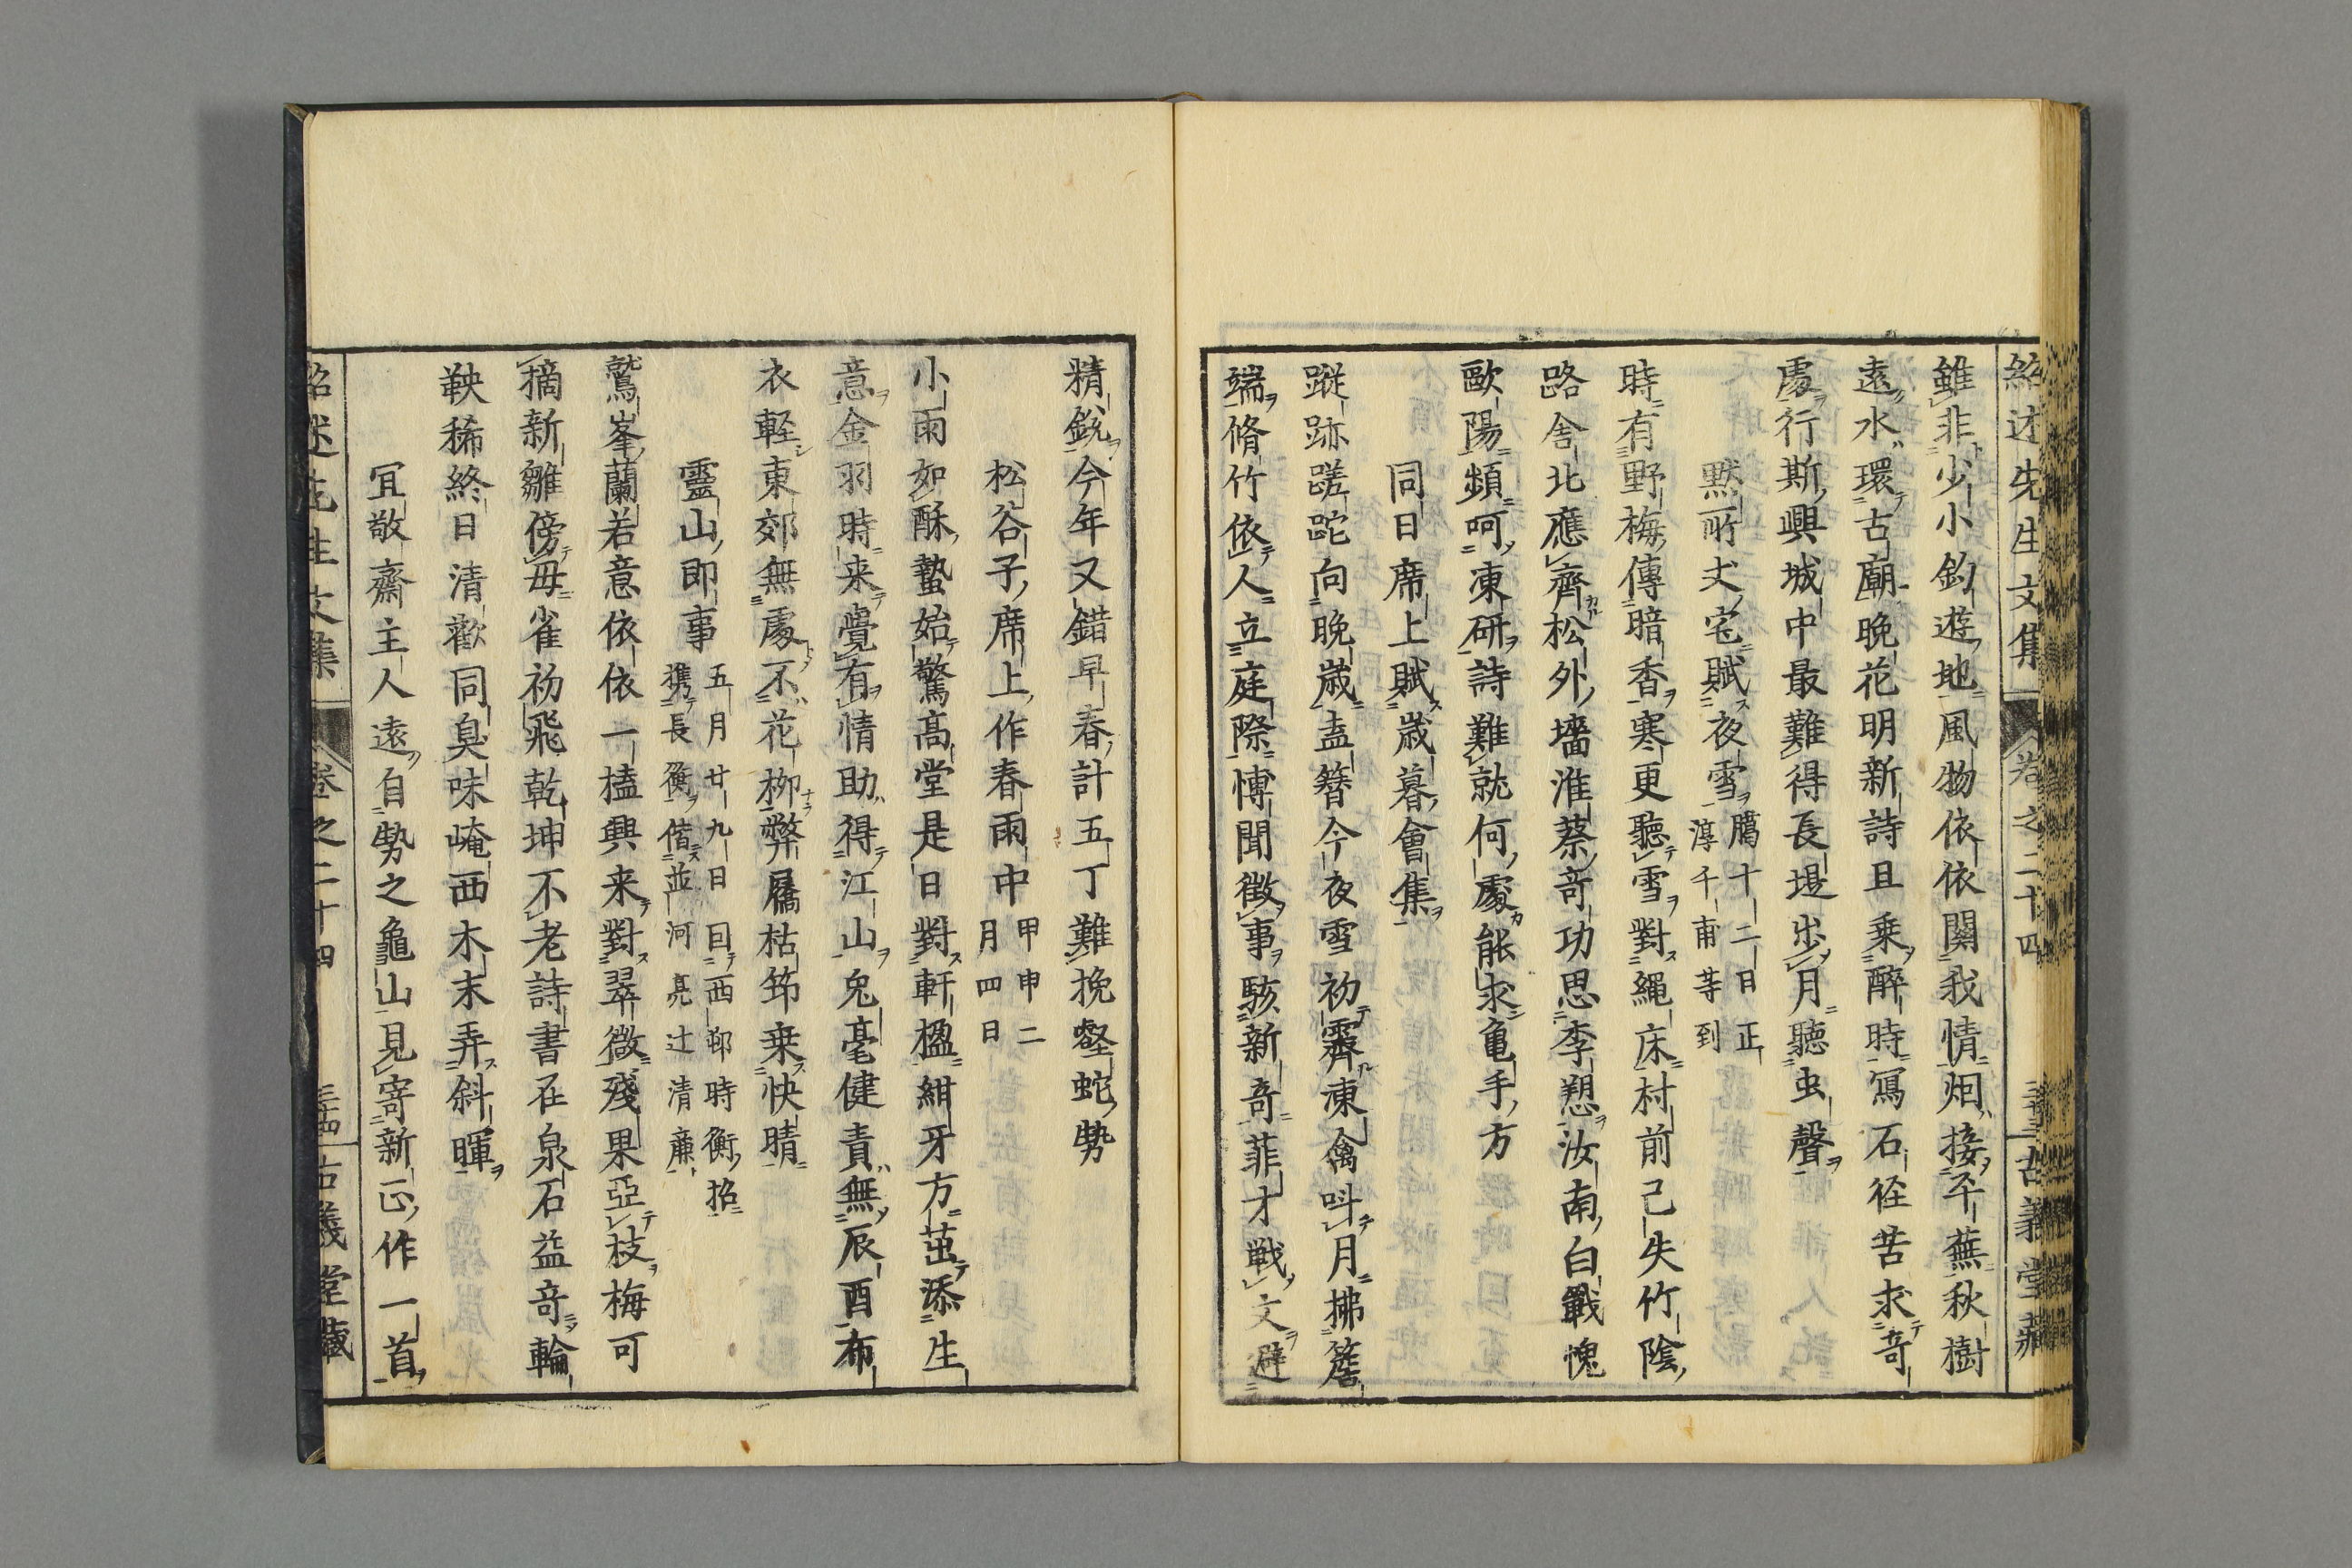 紹述先生文集
卷之二十四
古義堂藏
雖非少小釣遊地風物依依関我情烟接平蕪秋樹
遠水環古廟晩花明新詩且乗醉時寫石徑苦求奇
處行斯興城中最難得長堤步月聽虫聲
默所丈宅賦夜雪
臈十二日正
淳千甫等到
時有野梅傳暗香寒更聽雪對繩床村前已失竹陰
路舎北應齊松外墻淮蔡奇功思李愬汝南白戰愧
歐陽頻呵凍研詩難就何處能求亀手方
同日席上賦歳暮會集
蹤跡蹉跎向晩歳盍簪今夜雪初霽凍禽呌月拂簷
端脩竹依人立庭際愽聞徴事駭新奇菲才戦文避
精銳今年又錯早春計五丁難挽壑蛇勢
松谷子席上作春雨中
甲申二
月四日
小雨如酥蟄始驚高堂是日對軒楹紺牙方茁添生
意金羽時来覺有情助得江山兔毫健責無辰酉布
衣軽東郊無處不花柳弊屩枯筇乗快晴
靈山即事
五月廿九日回西邨時衡招
携長衡偕並河亮辻清廉
鷲峯蘭若意依依一榼興来對翠微殘果亞枝梅可
摘新雛傍母雀初飛乾坤不老詩書在泉石益奇輪
鞅稀終日清歡同臭味崦西木末弄斜暉
冝敬齋主人遠自勢之龜山見寄新正作一首
紹述先生文集
卷之二十四
古義堂藏